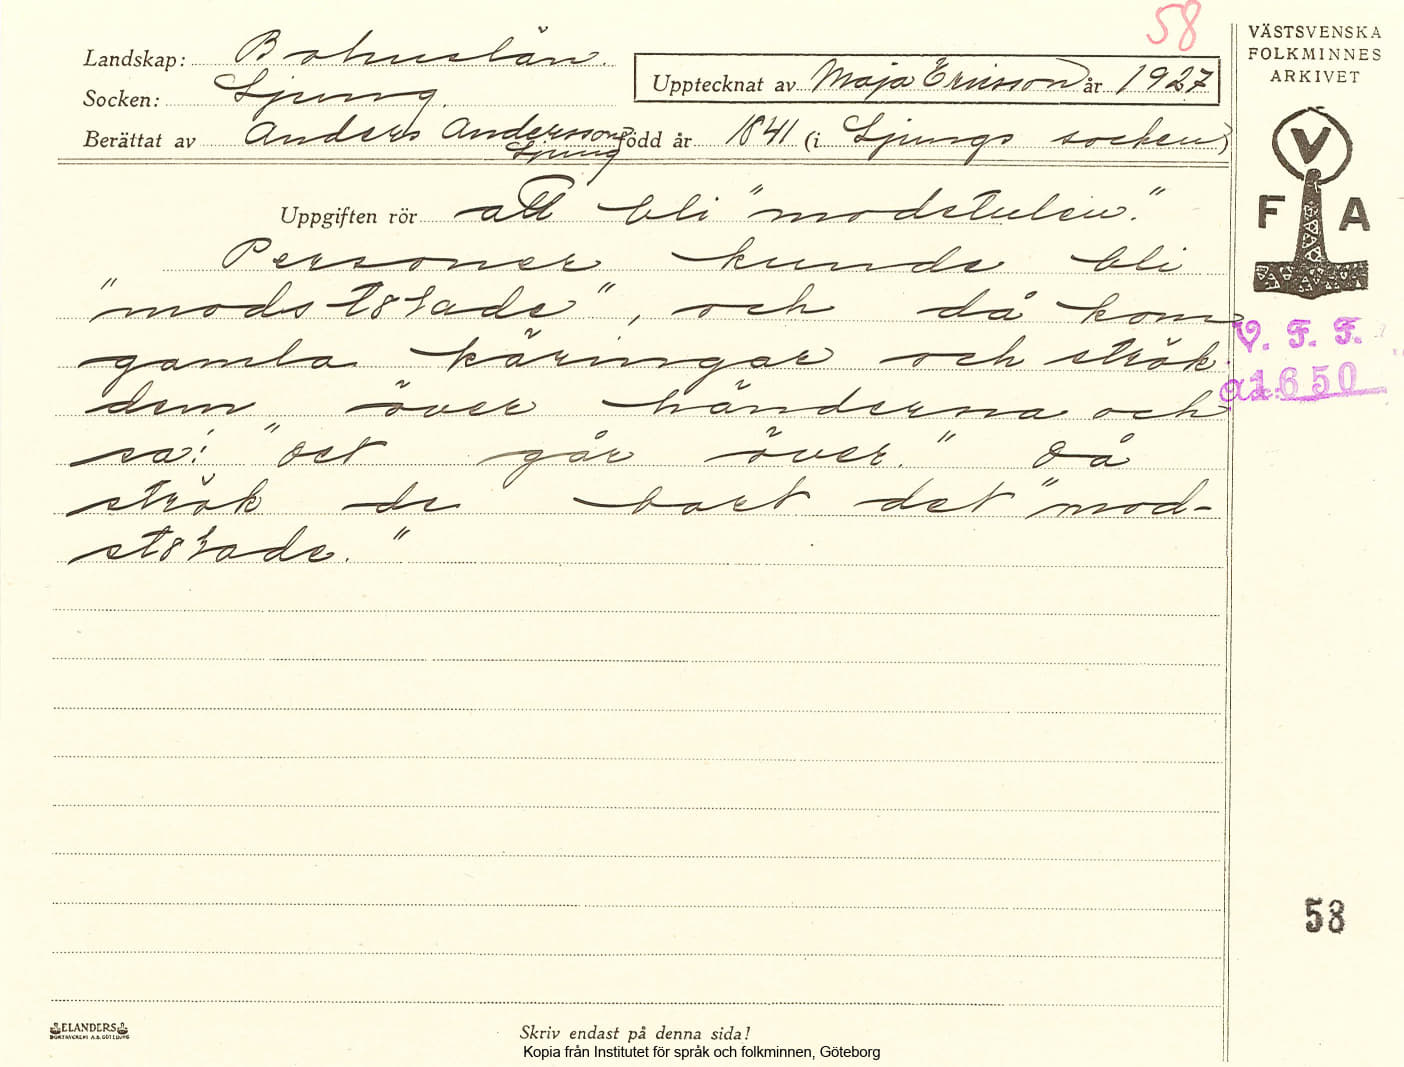 58
VÄSTSVENSKA
FOLKMINNES
ARKIVET
Landskap: Bohuslän.
Socken: Ljung.
Upptecknat av Maja Ericsson år 1927
Berättat av Anders Andersson född år 1841 (i Ljungs socken)
Ljung
V
F A
Uppgiften rör att bli "modstulen."
Personer kunde bli
", och då kom
gamla käringar och strök
dem över händerna och
sa: "Det går över." Då
strök de bort det "mod-
V. F. F.
1650
58
ELANDERS
Skriv endast på denna sida!
Kopia från Institutet för språk och folkminnen, Göteborg